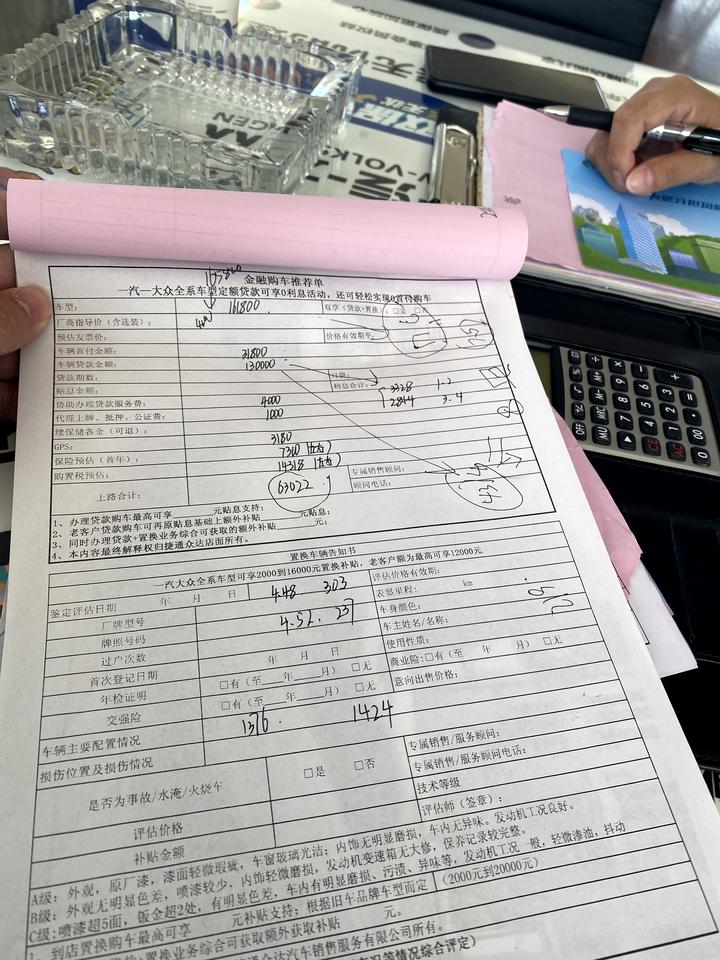 165800
金融购车推荐单
一汽—大众全系车型定额贷款可享0利息活动，还可轻松实现0首付购车
车型： 161800 双享（贷款+置换）：□是 □否
厂商指导价（含选装）：
预估发票价： 价格有效期至：
车辆首付金额： 31800
车辆贷款金额： 130000
贷款期数： 月供：
贴息金额： 利息合计： 3328 1-2
2844 3-4
协助办理贷款服务费： 4000
代理上牌、抵押、公证费： 1000
续保储备金（可退）：
GPS： 3180
保险预估（首年）： 7310
购置税预估： 14318 专属销售顾问：
上路合计： 63022 顾问电话：
1、办理贷款购车最高可享____元贴息支持；
2、老客户贷款购车可再原贴息基础上额外补贴____元贴息；
3、同时办理贷款+置换业务综合可获取的额外补贴____元；
4、本内容最终解释权归捷通众达店面所有。
置换车辆告知书
一汽大众全系车型可享2000到16000元置换补贴，老客户额为最高可享12000元
鉴定评估日期 年 月 日 4.48 303 评估价格有效期：
厂牌型号 4.52. 237 表显里程： km
牌照号码 车身颜色：
过户次数 车主姓名/名称：
首次登记日期 年 月 日 使用性质：
年检证明 □有（至____年____月） □无 商业险：□有（至 年 月） □无
交强险 □有（至____年____月） □无 意向出售价格：
车辆主要配置情况 1376. 1424
损伤位置及损伤情况 专属销售/服务顾问：
是否为事故/水淹/火烧车 □是 □否 专属销售/服务顾问电话：
评估价格 技术等级
补贴金额 评估师（签章）：
A级：外观，原厂漆，漆面轻微瑕疵，车窗玻璃光洁；内饰无明显磨损，车内无异味。发动机工况良好。
B级：外观无明显色差，喷漆较少，内饰轻微磨损，发动机变速箱无大修，保养记录较完整。
C级：喷漆超5面，钣金超2处，有明显色差，车内有明显磨损、污渍、异味等，发动机工况一般，轻微渗油，抖动
1、到店置换购车最高可享____元补贴支持；根据旧车品牌车型而定 （2000元到20000元）
+置换业务综合可获取额外获取补贴____元。
通众达汽车销售服务有限公司所有。
况等情况综合评定）